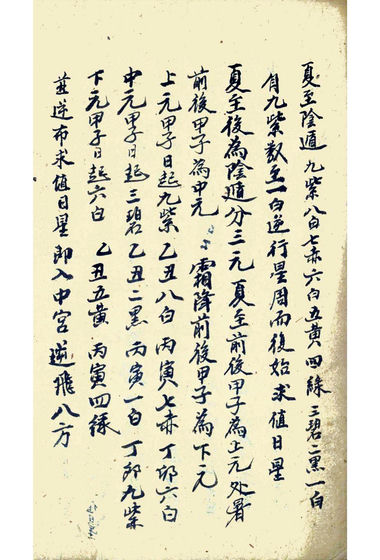 夏至陰遁 九紫八白七赤六白五黄四綠三碧二黑一白
自九紫数至一白逆行星周而復始求值日星
夏至後為陰遁分三元 夏至前後甲子為上元処暑
前後甲子為中元 霜降前後甲子為下元
上元甲子日起九紫 乙丑八白 丙寅七赤 丁卯六白
中元甲子日起三碧 乙丑二黑 丙寅一白 丁卯九紫
下元甲子日起六白 乙丑五黄 丙寅四綠
並逆布求值日星即入中宮逆飛八方